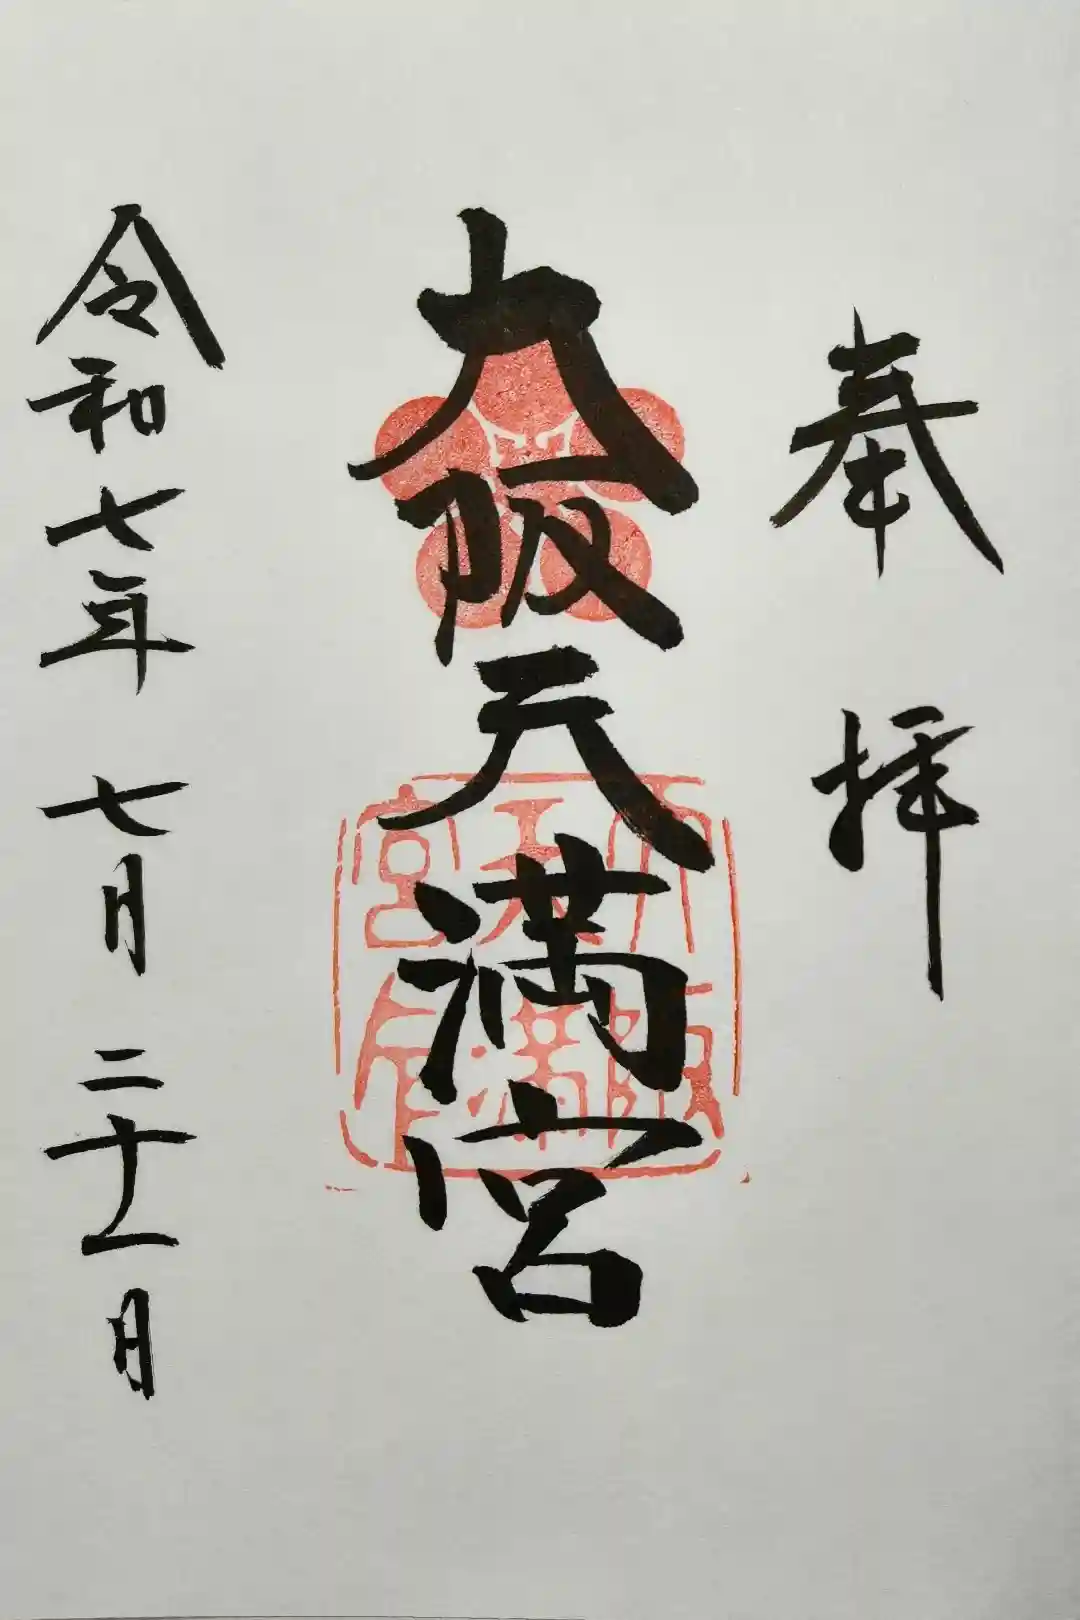 奉拝
大阪天満宮
令和七年 七月 二十一日
大阪天満宮印